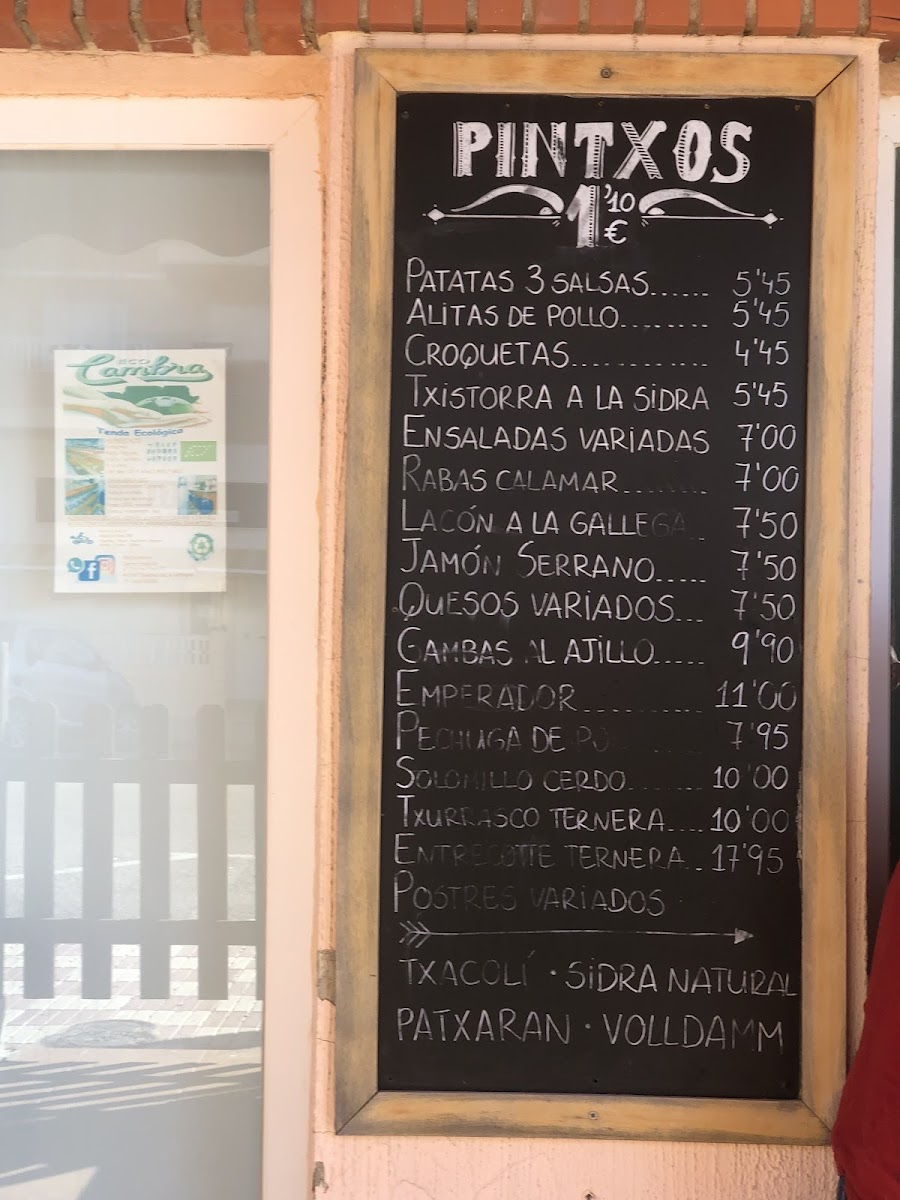 PINTXOS
1'10
€
PATATAS 3 SALSAS...... 5'45
ALITAS DE POLLO........ 5'45
CROQUETAS............. 4'45
TXISTORRA A LA SIDRA 5'45
ENSALADAS VARIADAS 7'00
RABAS CALAMAR........ 7'00
LACÓN A LA GALLEGA.. 7'50
JAMÓN SERRANO...... 7'50
QUESOS VARIADOS... 7'50
GAMBAS AL AJILLO..... 9'90
EMPERADOR........... 11'00
PECHUGA DE 7'95
SOLOMILLO CERDO....... 10'00
TXURRASCO TERNERA.... 10'00
ENTRECOTTE TERNERA.. 17'95
POSTRES VARIADOS
TXACOLÍ · SIDRA NATURAL
PATXARAN · VOLLDAMM
ECO
Cambra
Tenda Ecológica